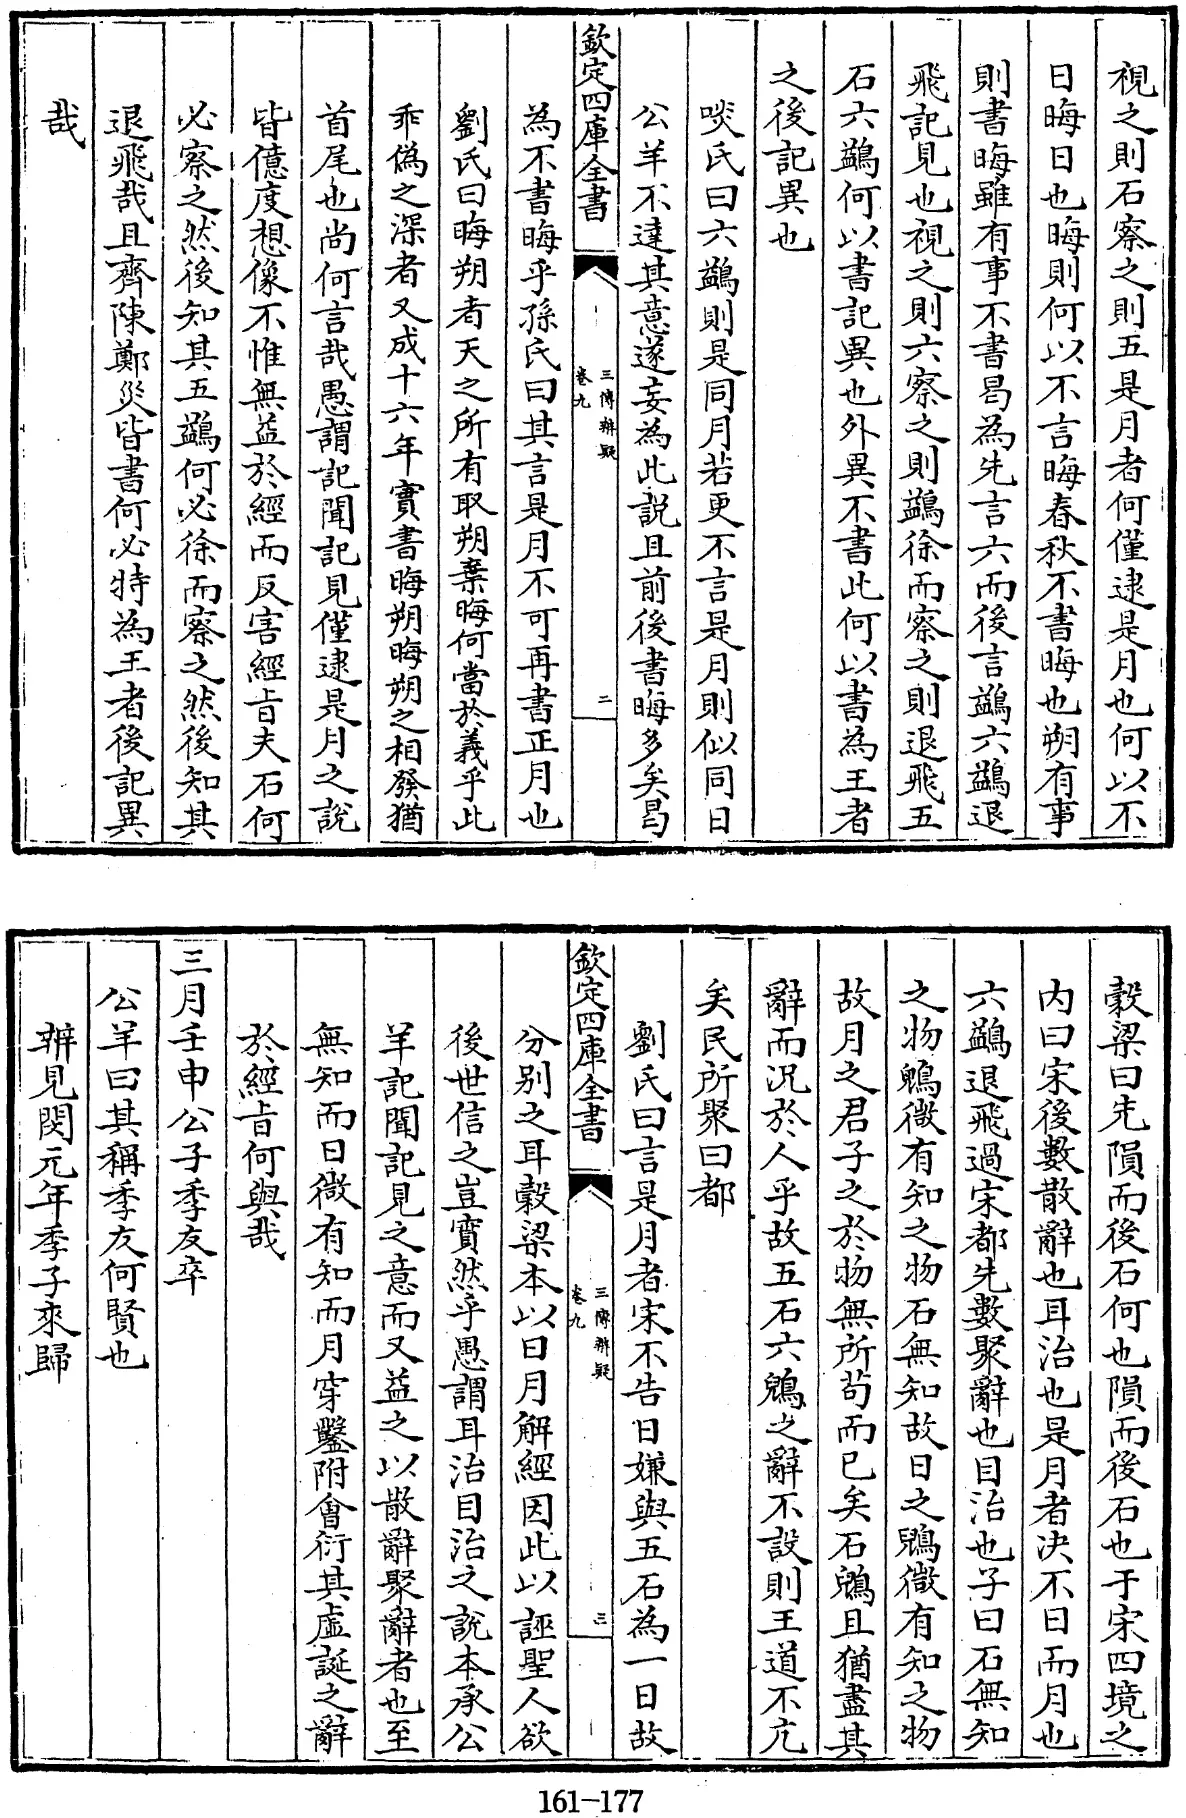 視之則石察之則五是月者何僅逮是月也何以不
日晦日也晦則何以不言晦春秋不書晦也朔有事
則書晦雖有事不書曷為先言六而後言鷁六鷁退
飛記見也視之則六察之則鷁徐而察之則退飛五
石六鷁何以書記異也外異不書此何以書為王者
之後記異也
啖氏曰六鷁則是同月若更不言是月則似同日
公羊不達其意遂妄為此說且前後書晦多矣曷
欽定四庫全書
三傳辨疑
卷九
二
為不書晦乎孫氏曰其言是月不可再書正月也
劉氏曰晦朔者天之所有取朔棄晦何當於義乎此
乖偽之深者又成十六年實書晦朔晦朔之相發猶
首尾也尚何言哉愚謂記聞記見僅逮是月之說
皆億度想像不惟無益於經而反害經旨夫石何
必察之然後知其五鷁何必徐而察之然後知其
退飛哉且齊陳鄭災皆書何必特為王者後記異
哉
穀梁曰先隕而後石何也隕而後石也于宋四境之
內曰宋後數散辭也耳治也是月者決不日而月也
六鷁退飛過宋都先數聚辭也目治也子曰石無知
之物鶂微有知之物石無知故日之鶂微有知之物
故月之君子之於物無所苟而已矣石鶂且猶盡其
辭而況於人乎故五石六鶂之辭不設則王道不亢
矣民所聚曰都
劉氏曰言是月者宋不告日嫌與五石為一日故
欽定四庫全書
三傳辨疑
卷九
三
分別之耳穀梁本以日月解經因此以誣聖人欲
後世信之豈實然乎愚謂耳治目治之說本承公
羊記聞記見之意而又益之以散辭聚辭者也至
無知而日微有知而月穿鑿附會衍其虛誕之辭
於經旨何與哉
三月壬申公子季友卒
公羊曰其稱季友何賢也
辨見閔元年季子來歸
161-177